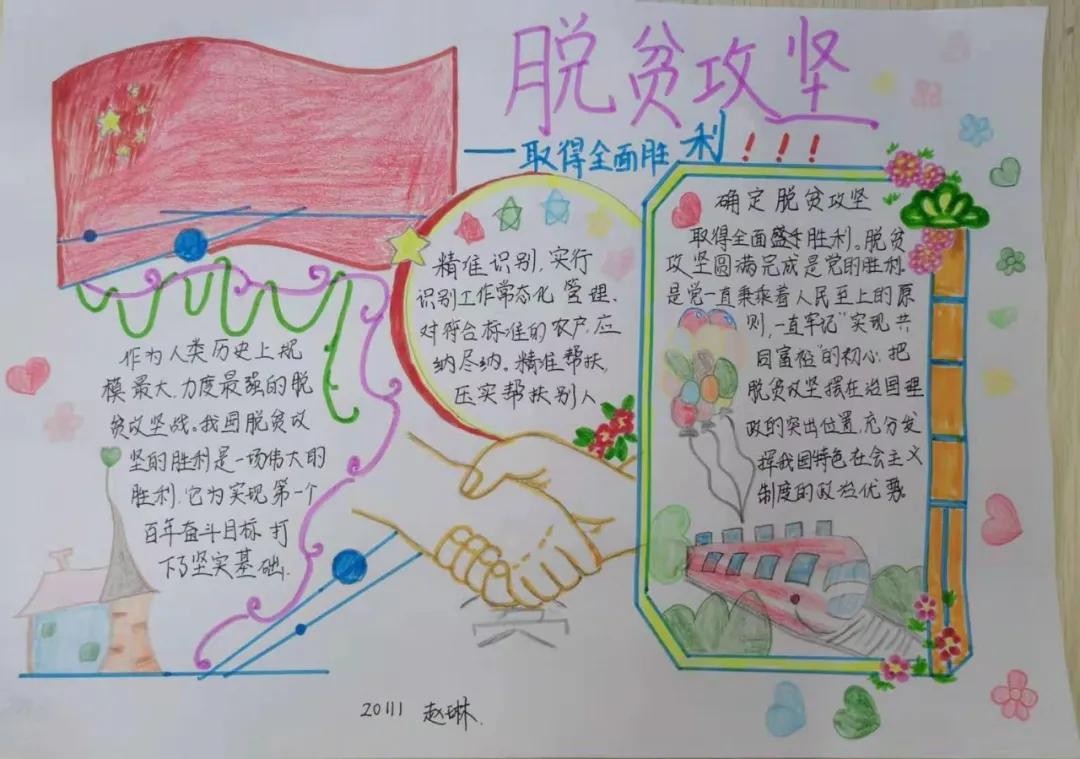 脱贫攻坚
——取得全面胜利!!!
作为人类历史上规
模最大,力度最强的脱
贫攻坚战。我国脱贫攻
坚的胜利是一场伟大的
胜利,它为实现第一个
百年奋斗目标,打
下了坚实基础.
精准识别,实行
识别工作常态化管理,
对符合标准的农户,应
纳尽纳。精准帮扶,
压实帮扶别人
确定脱贫攻坚
取得全面胜利。脱贫
攻坚圆满完成是党的胜利.
是党一直秉乘着人民至上的原
则,一直牢记"实现共
同富裕"的初心.把
脱贫攻坚摆在治国理
政的突出位置,充分发
挥我国特色社会主义
制度的政治优势。
20111 赵琳.